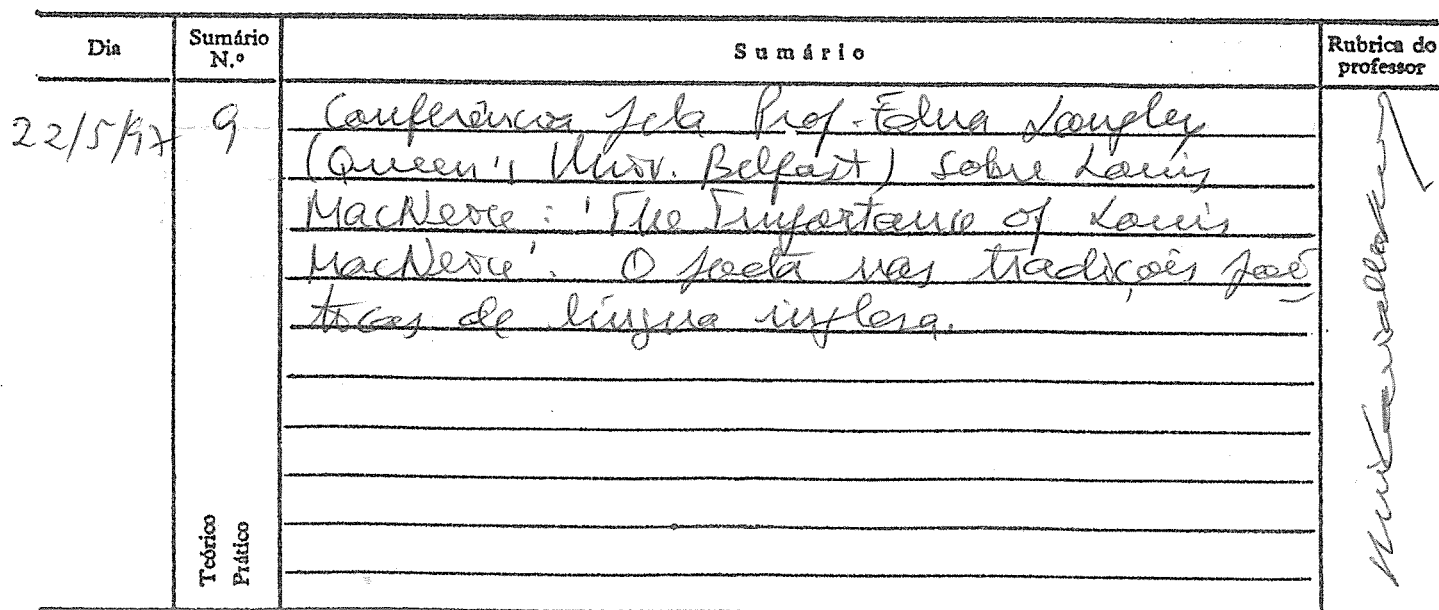 Dia
Sumário N.º
Sumário
Rubrica do professor
22/5/97
9
Conferência pela Prof. Edna Longley
(Queen's Univ. Belfast) sobre Louis
MacNeice: 'The Importance of Louis
MacNeice'. O poeta nas tradições poé
ticas de língua inglesa.
Teórico
Prático